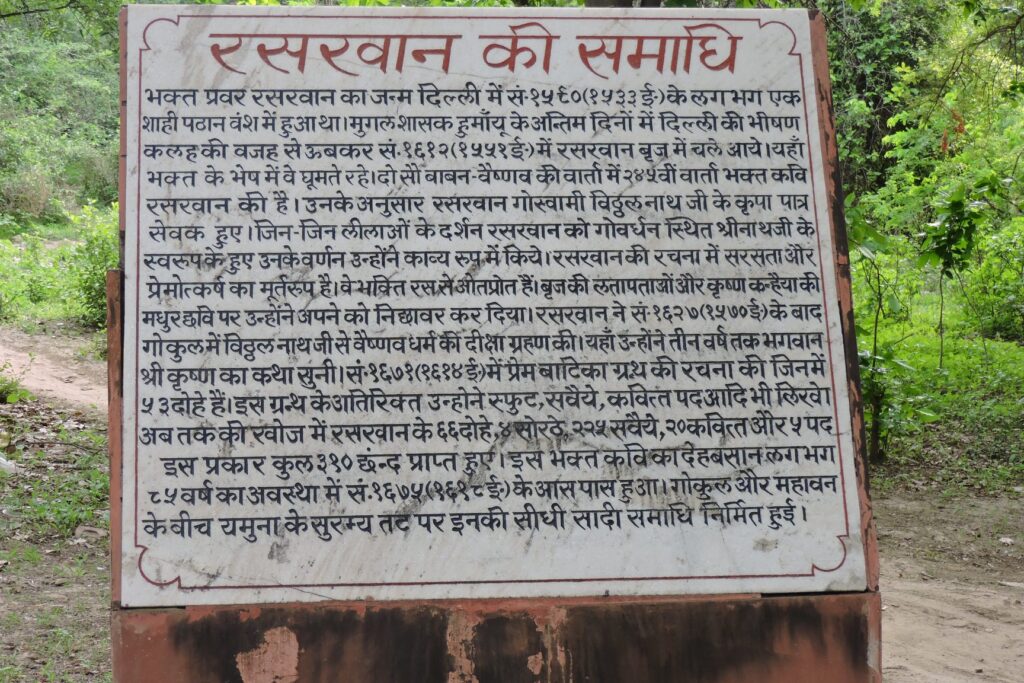 रसखान की समाधि
भक्त प्रवर रसखान का जन्म दिल्ली में सं॰१५९०(१५३३ई॰)के लग भग एक
शाही पठान वंश में हुआ था।मुगल शासक हुमाँयू के अन्तिम दिनों में दिल्ली की भीषण
कलह की वजह से ऊबकर सं॰१६१२(१५५५ई॰)में रसखान बृज में चले आये।यहाँ
भक्त के भेष में वे घूमते रहे।दो सौ बाबन-वैष्णव की वार्ता में २४५वीं वार्ता भक्त कवि
रसखान की है। उनके अनुसार रसखान गोस्वामी विठ्ठल नाथ जी के कृपा पात्र
सेवक हुए।जिन-जिन लीलाओं के दर्शन रसखान को गोवर्धन स्थित श्रीनाथजी के
स्वरुप के हुए उनके वर्णन उन्होंने काव्य रुप में किये।रसखान की रचना में सरसता और
प्रेमोत्कर्ष का मूर्तरुप है।वे भक्ति रस से ओतप्रोत हैं।बृज की लतापताओं और कृष्ण कन्हैया की
मधुर छवि पर उन्होंने अपने को निछावर कर दिया।रसखान ने सं॰१६२७(१५७०ई॰)के बाद
गोकुल में विठ्ठल नाथ जी से वैष्णव धर्म की दीक्षा ग्रहण की।यहाँ उन्होंने तीन वर्ष तक भगवान
श्री कृष्ण का कथा सुनी।सं॰१६७१(१६१४ई॰)में प्रेम बाटिका ग्रंथ की रचना की जिनमें
५३दोहे हैं।इस ग्रन्थ के अतिरिक्त उन्होंने स्फुट,सवैये,कवित्त पद आदि भी लिखे।
अब तक की खोज में रसखान के ६६दोहे,४ सोरठे,२२५ सवैये,२०कवित्त और ५ पद
इस प्रकार कुल ३१० छंन्द प्राप्त हुए।इस भक्त कवि का देहबसान लग भग
८५ वर्ष का अवस्था में सं॰१६७५(१६१८ई॰)के आस पास हुआ।गोकुल और महावन
के बीच यमुना के सुरम्य तट पर इनकी सीधी सादी समाधि निर्मित हुई।